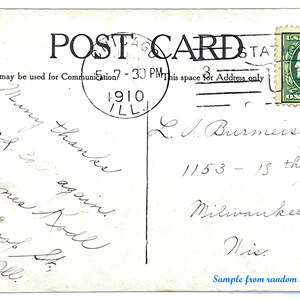 POST CARD
may be used for Communication
This space for Address only
5 7-30 PM
1910
ILL.
STA
3
Many thanks
again
St.
Ill.
L. S. Burmeis
1153 - 18 th
Milwaukee
Wis.
Sample from random